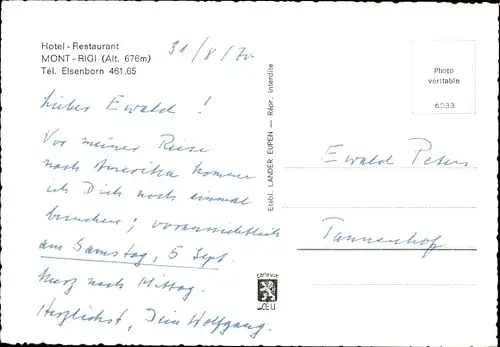 Hotel - Restaurant
MONT - RIGI (Alt. 676m)
Tél. Elsenborn 461.65
31/8/70
Liebes Ewald !
Vor meiner Reise
nach Amerika komme
ich Dich noch einmal
besuchen; voraussichtlich
am Samstag, 5 Sept.
kurz nach Mittag.
Herzlichst, Dein Wolfgang.
Etabl. LANDER EUPEN — Répr. interdite
Photo
véritable
6033
Ewald Peters
Tannenhof